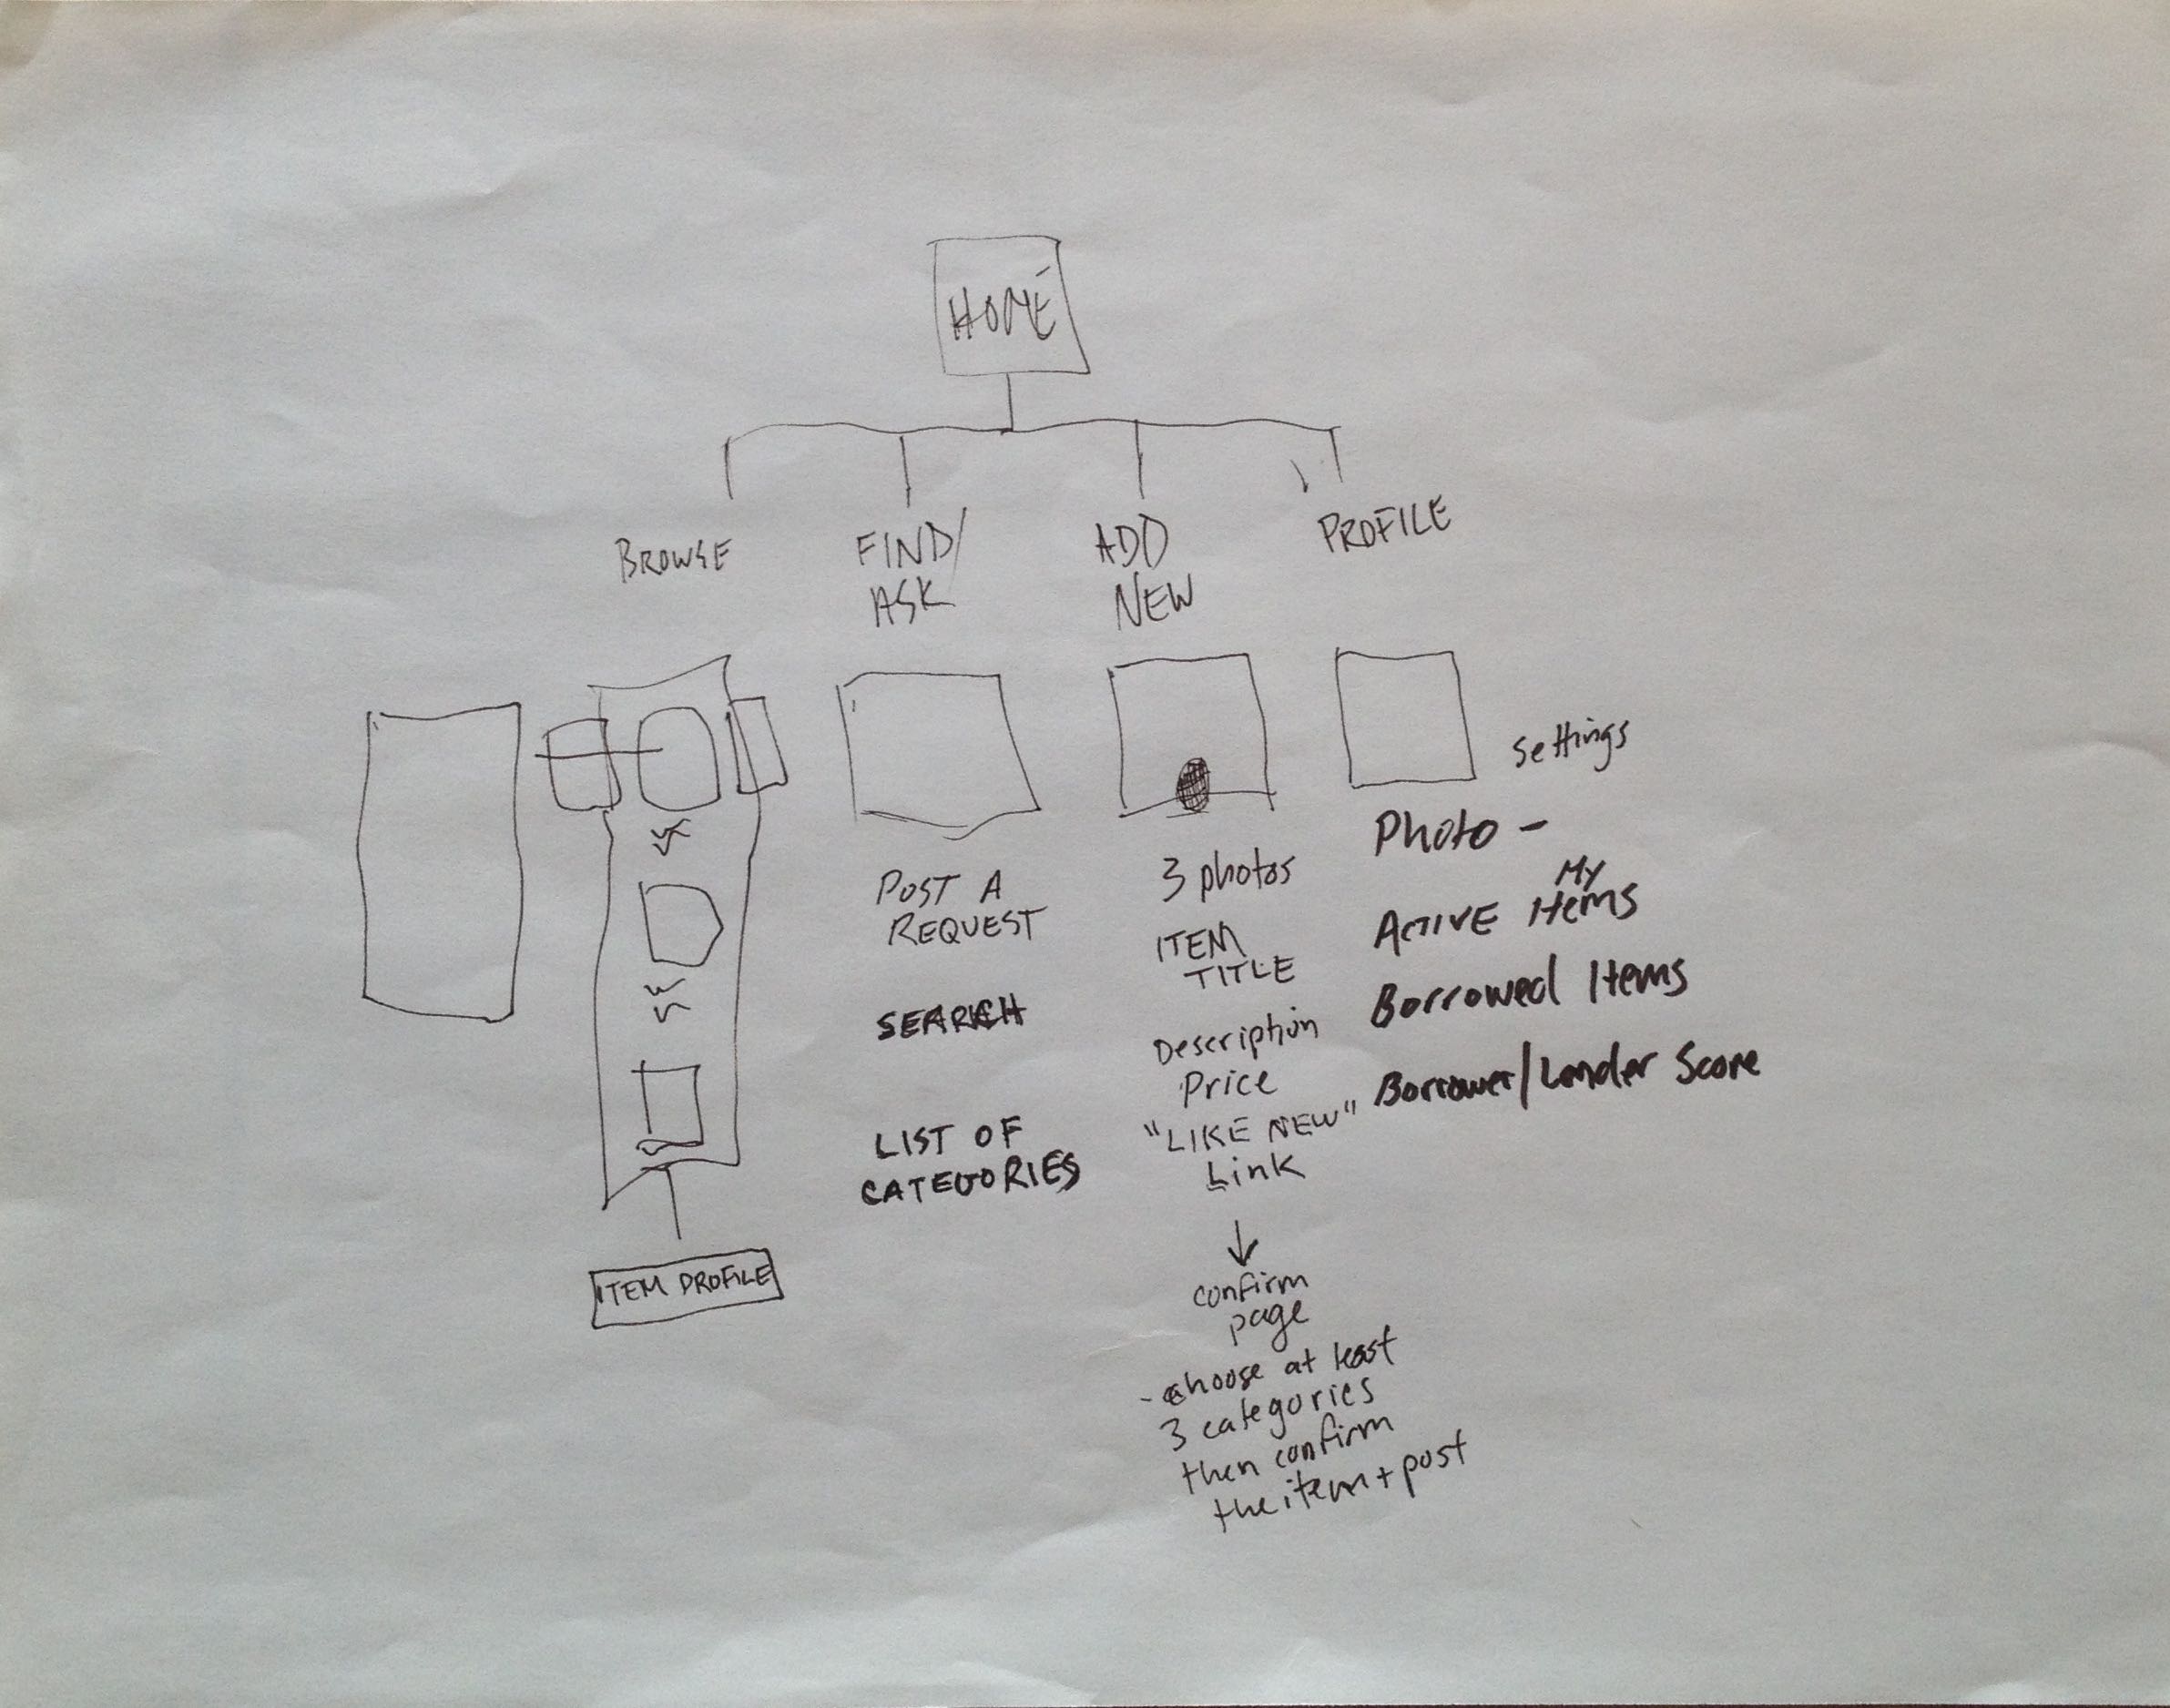 HOME
BROWSE
FIND/
ASK
ADD
NEW
PROFILE
POST A
REQUEST
SEARCH
LIST OF
CATEGORIES
3 photos
ITEM
TITLE
Description
Price
"LIKE NEW"
Link
confirm
page
- choose at least
3 categories
then confirm
the item + post
Settings
Photo -
My
Active Items
Borrowed Items
Borrower/Lender Score
ITEM PROFILE